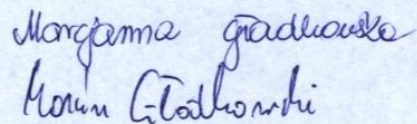 Marjanna Gładkowska
Marcin Gładkowski